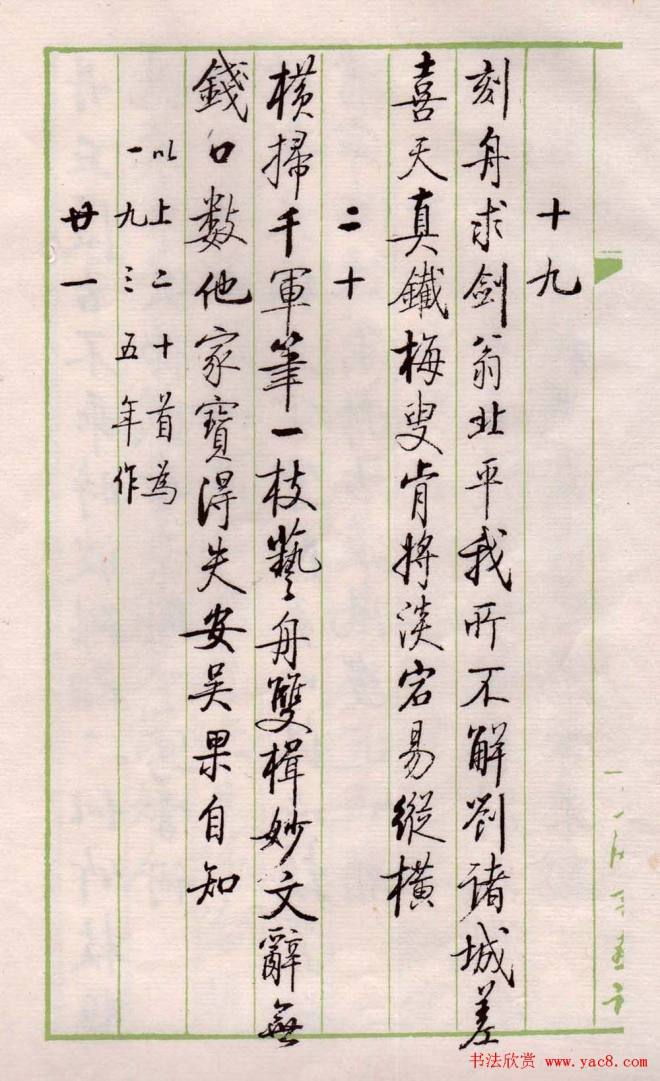 十九
刻舟求劍翁北平我所不解刘諸城差
喜天真鐵梅叟肯將淡宕易縱橫
二十
橫掃千軍筆一枝藝舟雙楫妙文辭無
錢口數他家寶得失安吳果自知
以上二十首為
一九三五年作
廿一
书法欣赏 www.yac8.com